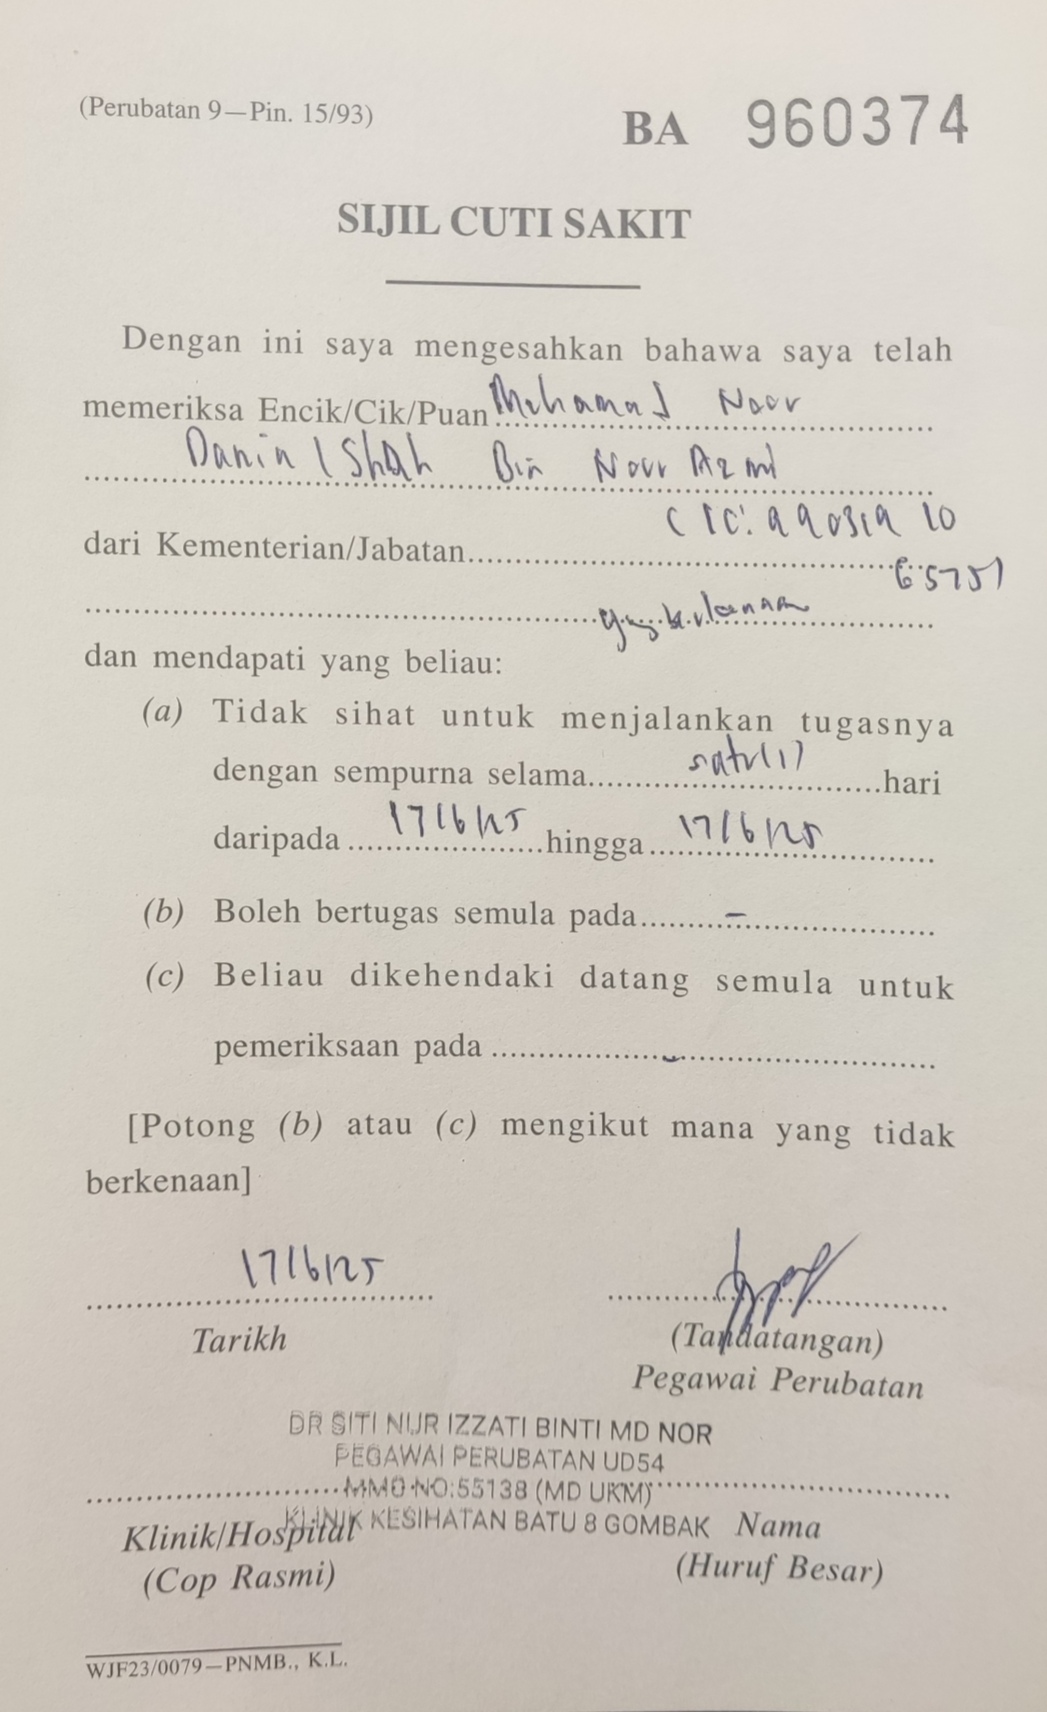 (Perubatan 9—Pin. 15/93)
BA 960374
SIJIL CUTI SAKIT
Dengan ini saya mengesahkan bahawa saya telah
memeriksa Encik/Cik/Puan Mohamad Noor
Danin Ishah Bin Noor Azmi
(IC: 990319 10
dari Kementerian/Jabatan
65751
dan mendapati yang beliau:
(a) Tidak sihat untuk menjalankan tugasnya
dengan sempurna selama satu(1) hari
daripada 17/6/25 hingga 17/6/25
(b) Boleh bertugas semula pada -
(c) Beliau dikehendaki datang semula untuk
pemeriksaan pada -
[Potong (b) atau (c) mengikut mana yang tidak
berkenaan]
17/6/25
Tarikh
(Tandatangan)
Pegawai Perubatan
DR SITI NUR IZZATI BINTI MD NOR
PEGAWAI PERUBATAN UD54
MMC NO:55138 (MD UKM)
KLINIK KESIHATAN BATU 8 GOMBAK
Klinik/Hospital
Nama
(Cop Rasmi)
(Huruf Besar)
WJF23/0079—PNMB., K.L.